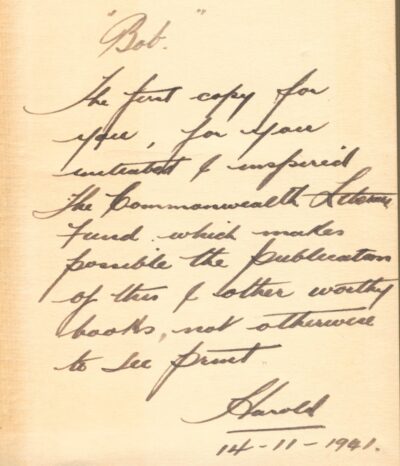 "Bob."
The first copy for
you, for you
initiated & inspired
The Commonwealth Literary
Fund. which makes
possible the publication
of this & other worthy
books, not otherwise
to see print
Harold
14-11-1941.